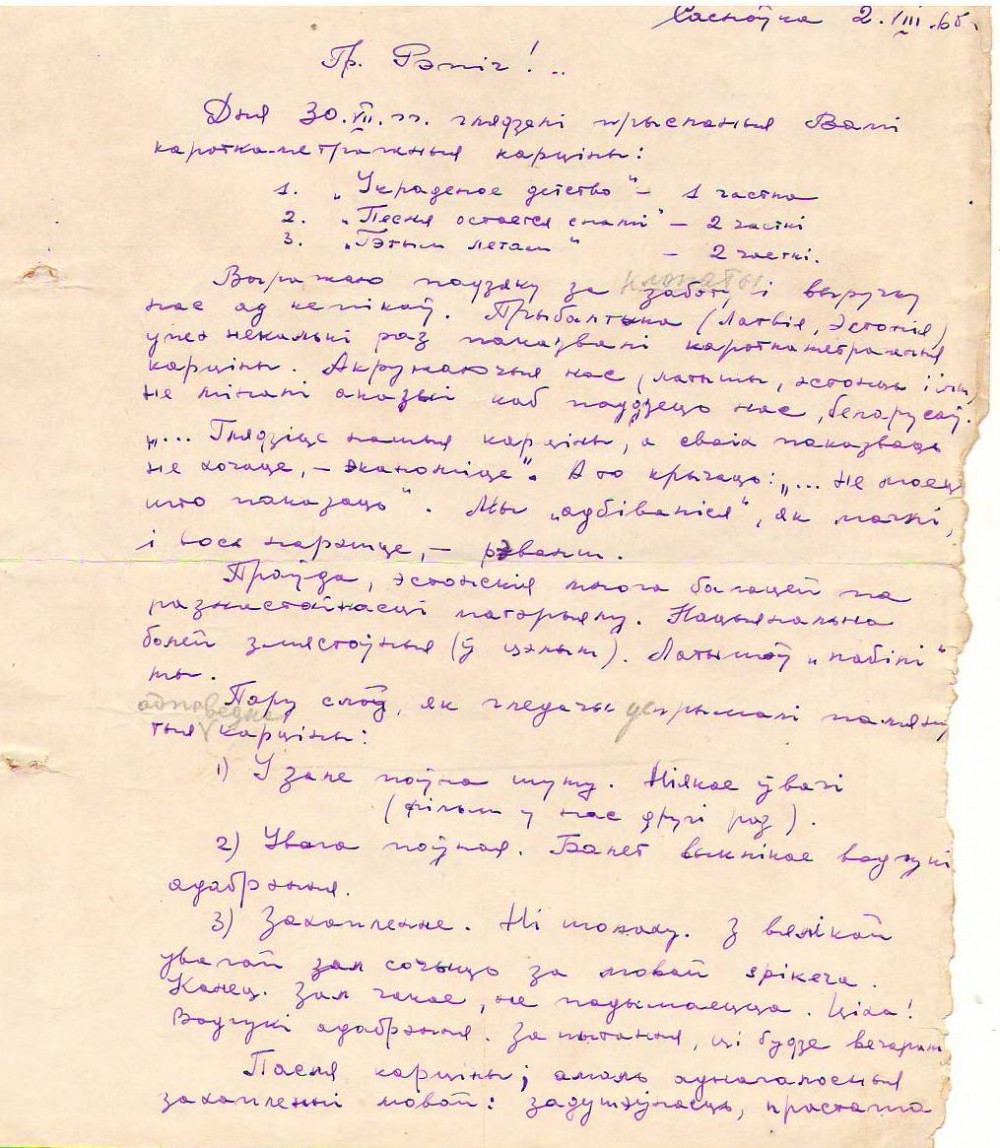 Сасноўка 2.VIII.65.
Гр. Рэпіч!..
Дня 30.VII. гг. глядзелі прысланыя Вамі
каротка-метражныя карціны:
1. „Украденое детство“ – 1 частка
2. „Песня остается с нами“ – 2 часткі
3. „Гэтым летам“ – 2 часткі.
Выражаю падзяку за забот, клопаты і выручку
нас ад кепікаў. Прыбалтыка (Латвія, Эстонія)
ужо некалькі раз паказвалі каротка метражныя
карціны. Акружаючыя нас, латышы, эстонцы і інш,
не міналі аказыі каб паддзець нас, беларусаў.
„... Глядзіце нашыя карціны, а сваіх паказваць
не хочаце, – эканоміце“. А то крычаць: „... Не маец
што паказаць“. Мы „адбіваліся“, як маглі,
і вось нарэшце, – рэванш.
Праўда, эстонскія многа багацей па
разнастайнасці матэрыялу. Нацыянальна
болей змястоўныя (ў цэлым). Латышоў „пабілі“
мы.
Пару слоў, як гледачы успрымалі памяну
тыя адпаведна карціны:
1) У зале поўна шуму. Ніякае ўвагі
(фільм у нас другі раз).
2) Увага поўная. Балет выклікае водгукі
адабрэння.
3) Захапленне. Ні шолаху. З вялікай
увагай зал сочыць за мовай
Канец. Зал чакае, не падымаецца. Ціха!
Водгукі адабрэння. Запытання, ці будзе вечарам
Пасля карціны; амаль аднагалосныя
захапленні мовай: задушэўнасць, прастата